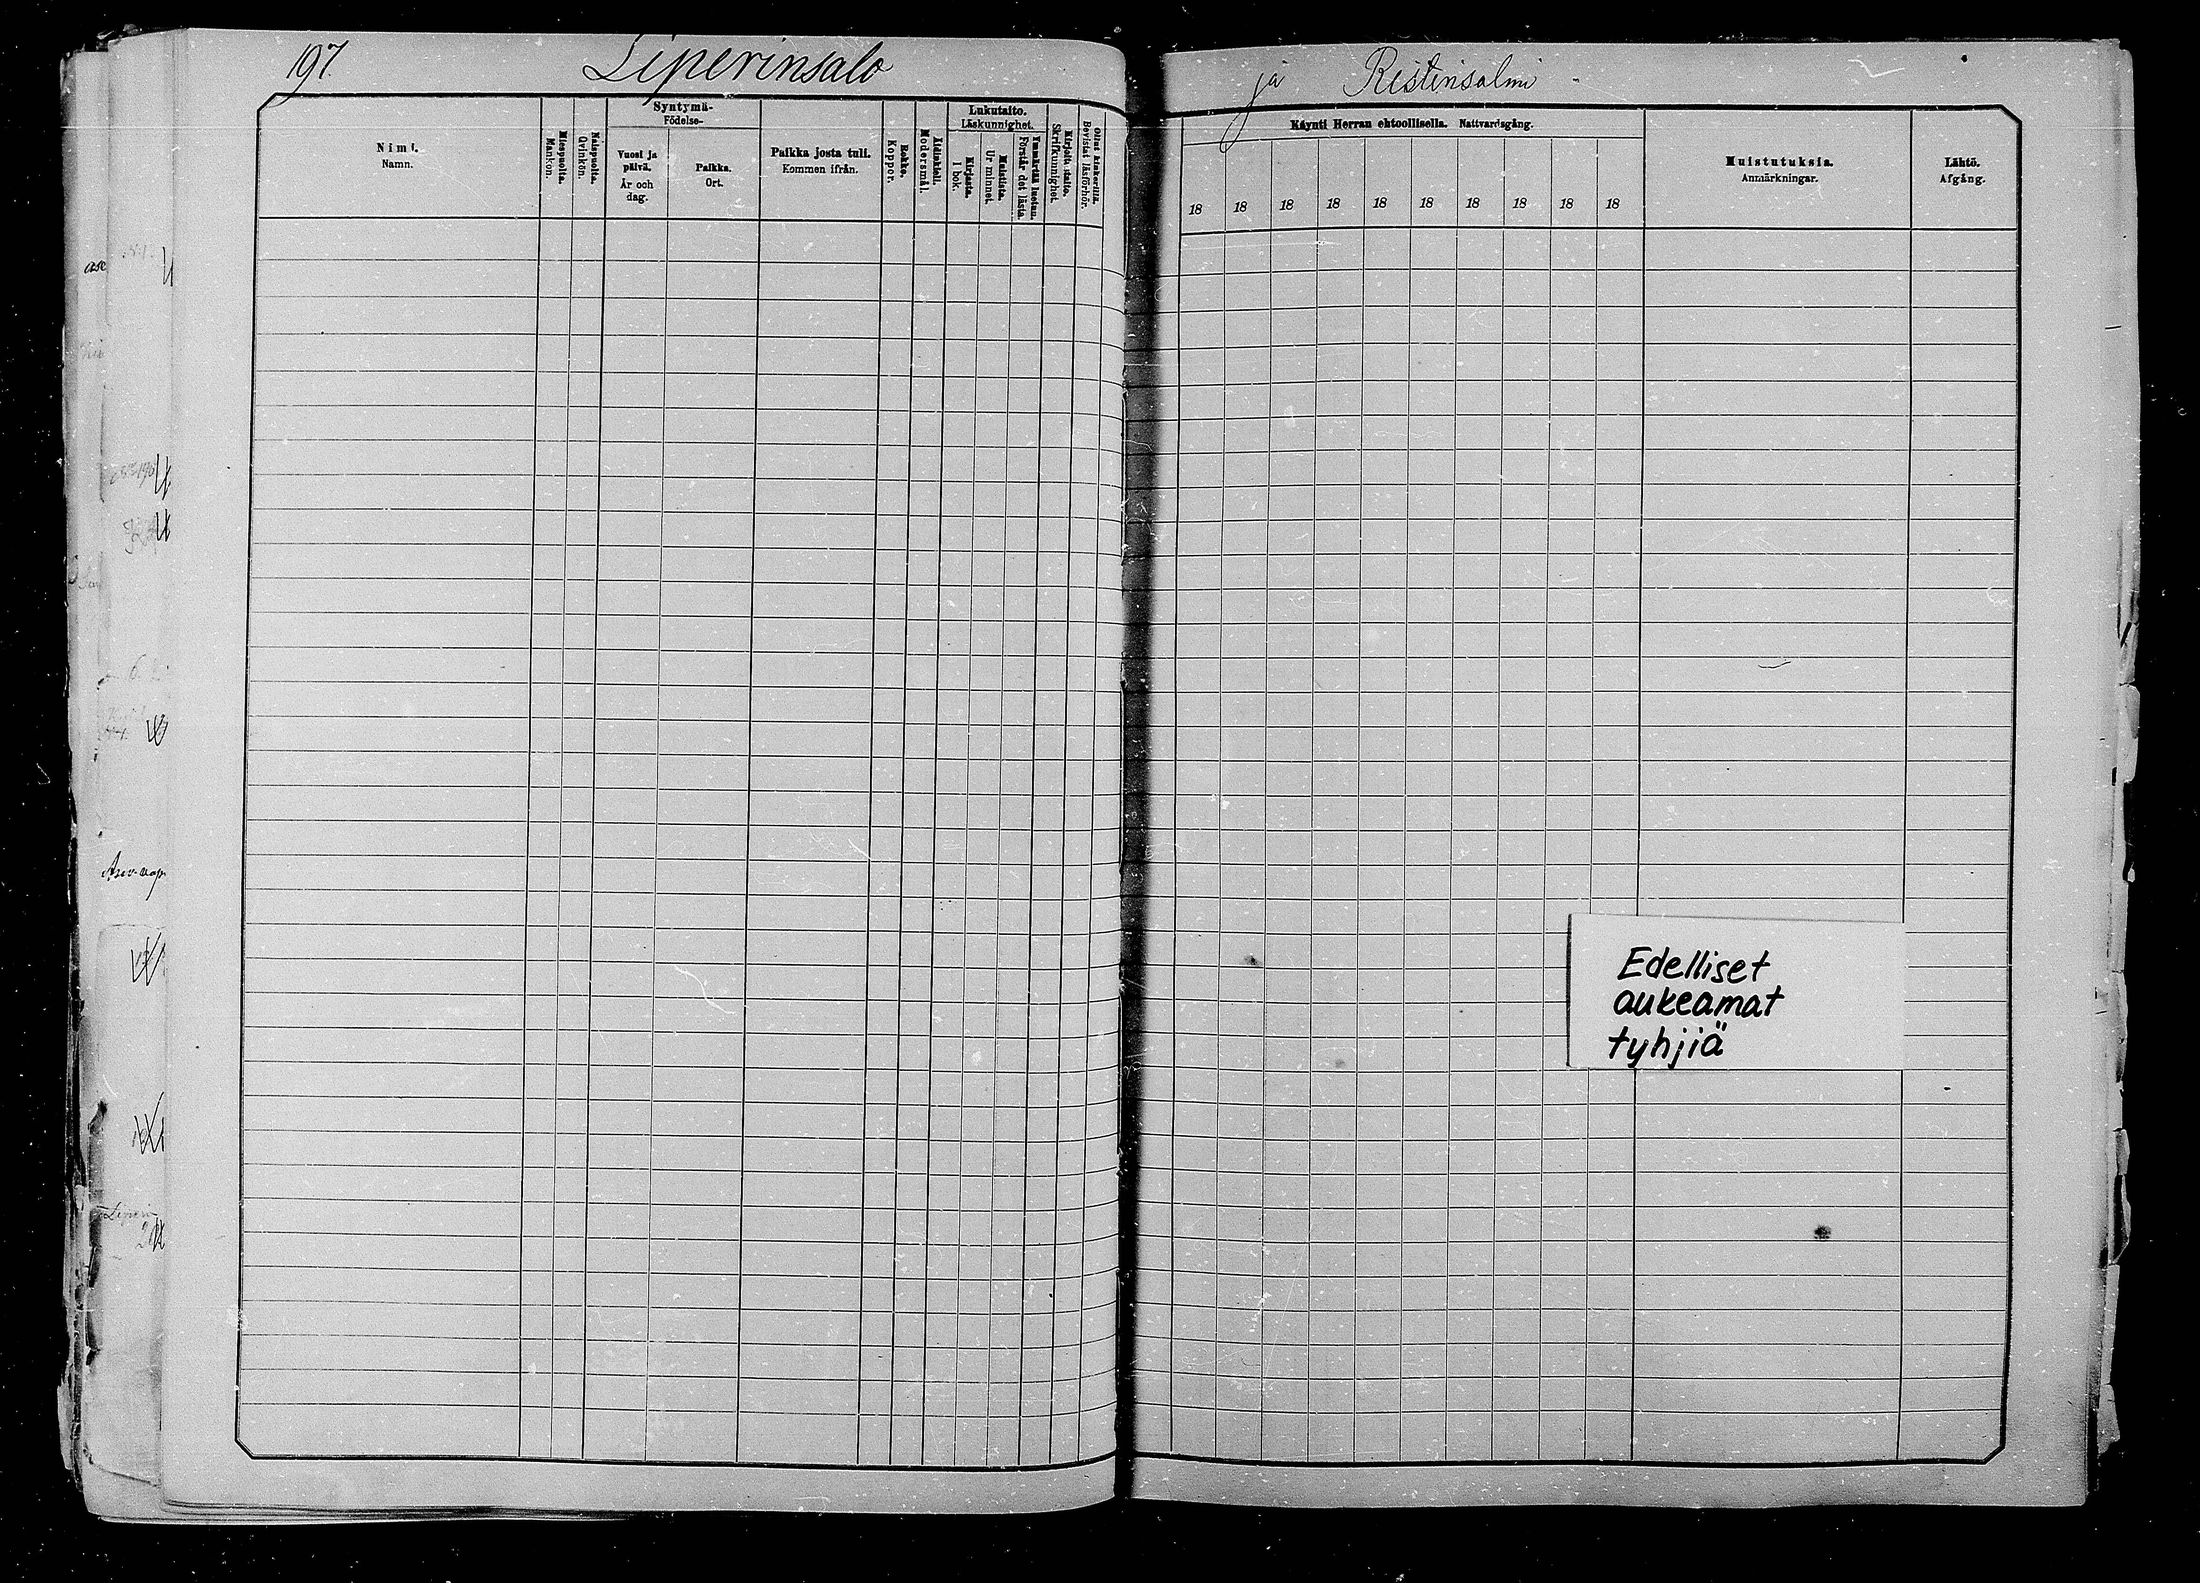 197.
Liperinsalo
ja Ristinsalmi
Nimi.
Namn.
Miespuolia.
Mankön.
Naispuolia.
Qvinkön.
Syntymä-
Födelse-
Vuosi ja
päivä.
År och
dag.
Paikka.
Ort.
Paikka josta tuli.
Kommen ifrån.
Rokko.
Koppor.
Äidinkieli.
Modersmål.
Lukutaito.
Läskunnighet.
Kirjasta.
I bok.
Muistista.
Ur minnet.
Ymmärtää luetun.
Förstår det lästa.
Kirjoit. taito.
Skrifkunnighet.
Ollut kinkerillä.
Bevistat läsförhör.
Käynti Herran ehtoollisella. Nattvardsgång.
18 18 18 18 18 18 18 18 18 18
Muistutuksia.
Anmärkningar.
Lähtö.
Afgång.
Edelliset
aukeamat
tyhjiä